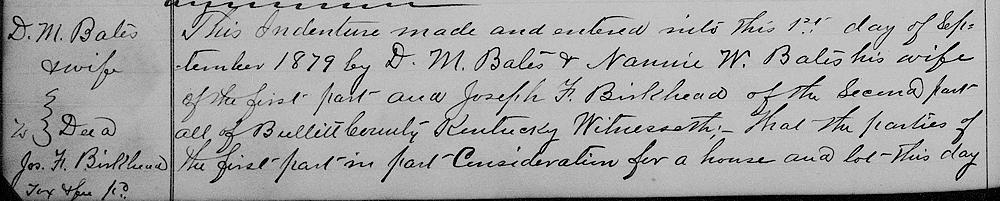 D. M. Bates
& wife
to } Deed
Jos. F. Birkhead
Tax & fee pd.
This Indenture made and entered into this 1st day of Sep-
-tember 1879 by D. M. Bates & Nannie W. Bates his wife
of the first part and Joseph F. Birkhead of the Second part
all of Bullitt County Kentucky Witnesseth;- that the parties of
the first part in part Consideration for a house and lot this day